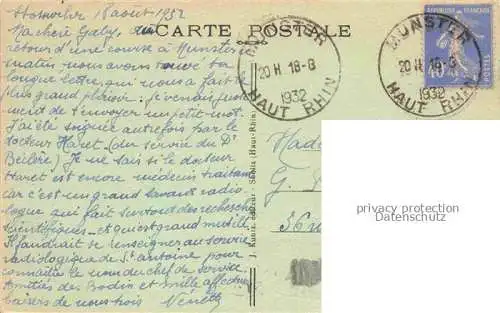 Stosswihr 18 aout 1932
CARTE POSTALE
Ma chère Gaby, au
retour d'une course à Munster
matin nous avons trouvé ta
longue lettre qui nous a fait le
plus grand plaisir: je venais juste-
ment de t'envoyer un petit mot.
J'ai été soignée autrefois par le
docteur Haret (du service du Dr
Béclère) Je ne sais si le docteur
Haret est encore médecin traitant
car c'est un grand savant radio-
logue qui fait surtout des recherches
scientifiques et qui est grand mutilé.
Il faudrait se renseigner au service
radiologique de St antoine pour
connaître le nom du chef de service.
Amitiés des Bodin et mille affectueux
baisers de nous trois
MUNSTER
20 H 18-8
1932
HAUT RHIN
MUNSTER
20 H 18-8
1932
HAUT RHIN
REPUBLIQUE FRANÇAISE
40
POSTES
(Haut-Rhin)
G.
36
privacy protection
Datenschutz